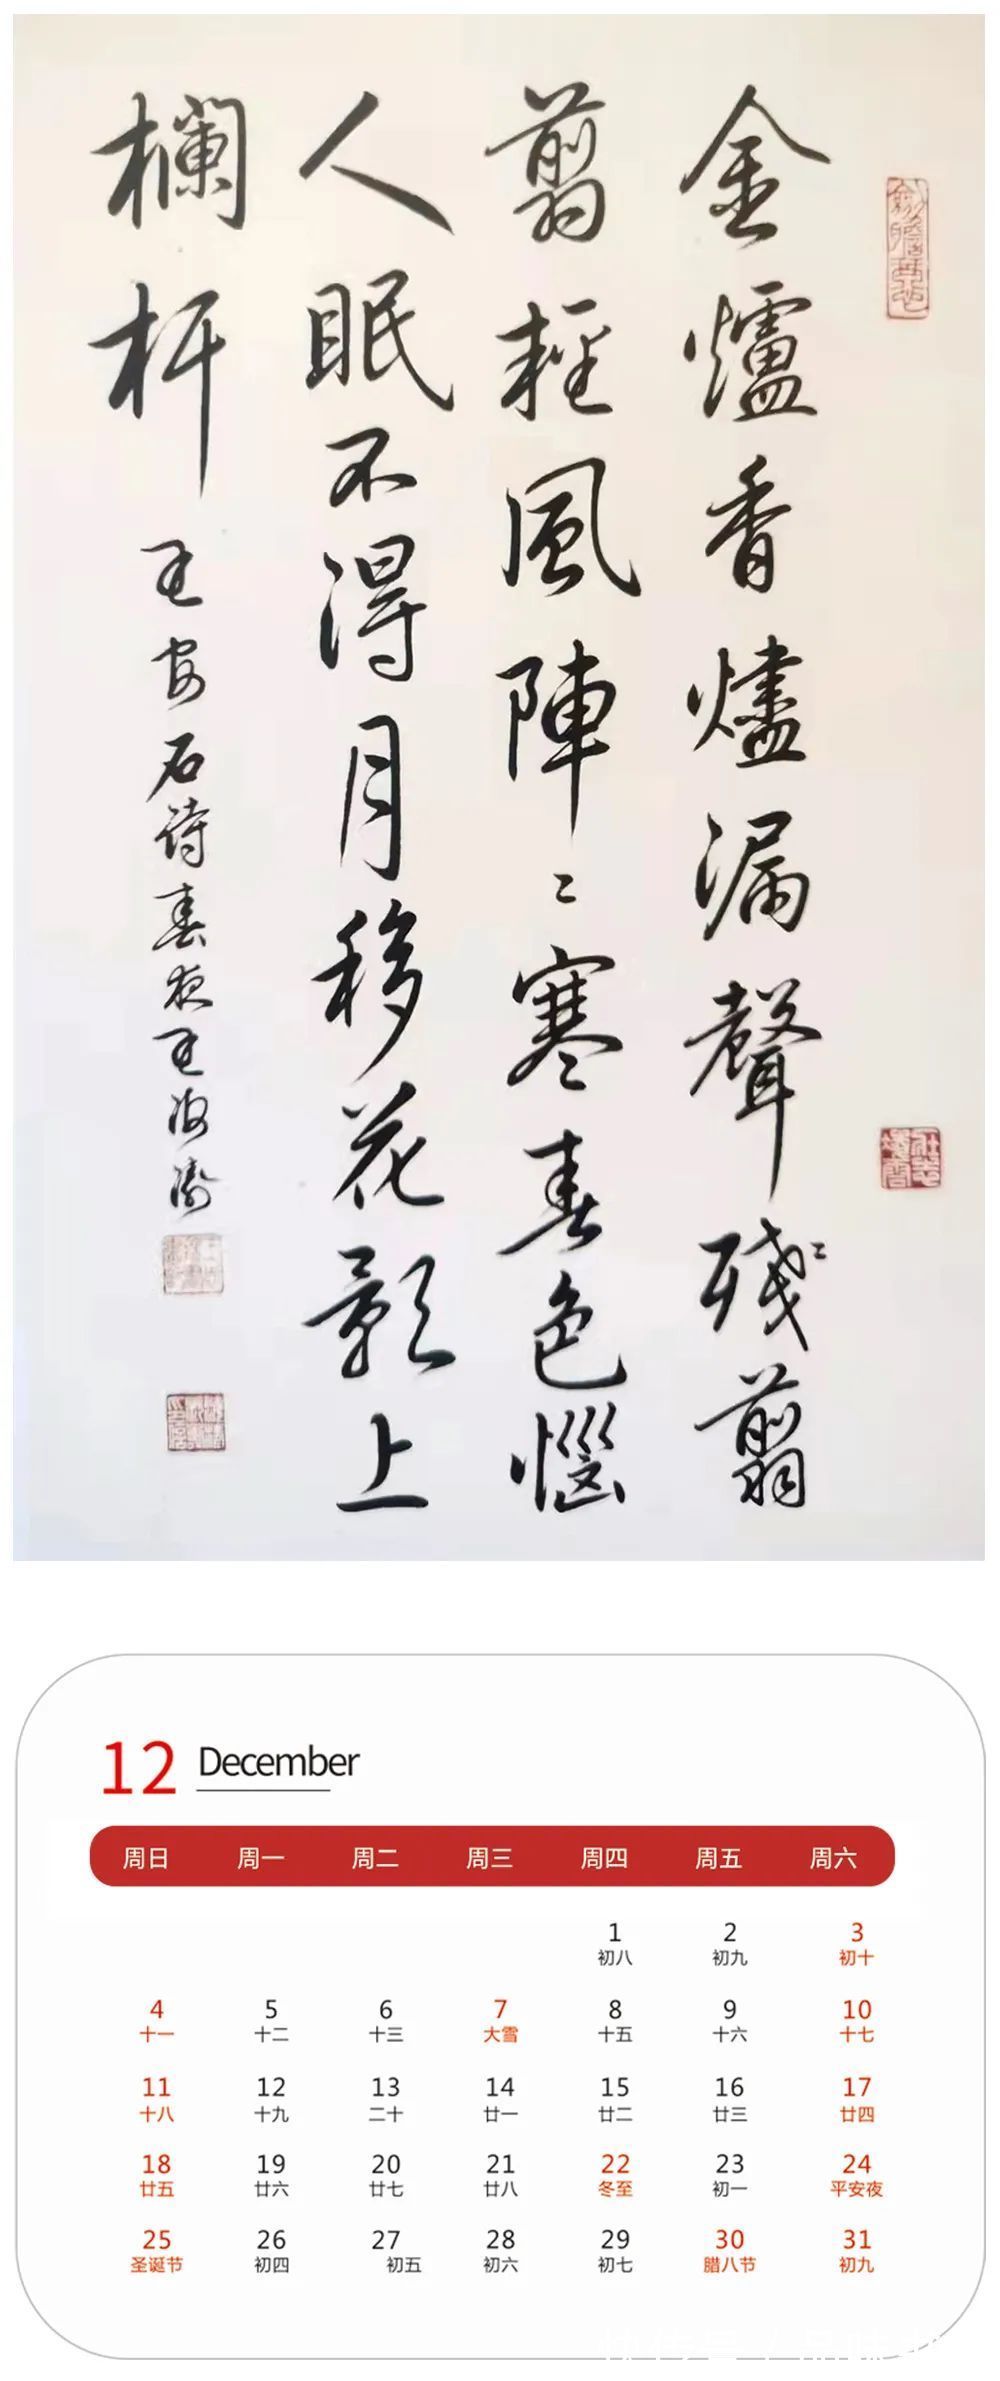 金爐香燼漏聲殘〻翦
翦輕風陣〻寒春色惱
人眠不得月移花影上
欄杆
王安石诗春夜王海
12 December
周日 周一 周二 周三 周四 周五 周六
1 2 3
初八 初九 初十
4 5 6 7 8 9 10
十一 十二 十三 大雪 十五 十六 十七
11 12 13 14 15 16 17
十八 十九 二十 廿一 廿二 廿三 廿四
18 19 20 21 22 23 24
廿五 廿六 廿七 廿八 冬至 初一 平安夜
25 26 27 28 29 30 31
圣诞节 初四 初五 初六 初七 腊八节 初九
快传号 / 品味